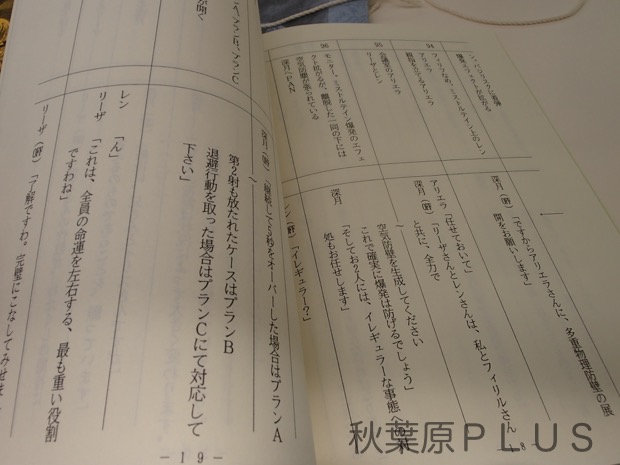 ジ・バジリスクに着弾
爆発エフェクトが拡がる
94
フィリルなめ、ミストルテインとのレン
アリエラ
親指を立てるアリエラ
95
会議室のアリエラ
リーザとレン
96
モニター。ミストルテイン爆発のエフェ
クト拡がるが、離脱した一同の下には
空気防壁が張られている
深月へPAN
深月(餅)
「ですからアリエラさんに、多重物理防壁の展
開をお願いします」
アリエラ
「任せておいて」
深月(餅)
「リーザさんとレンさんは、私とフィリルさん
と共に、全力で
空気防壁を生成してください
これで確実に爆発は防げるでしょう」
深月
「そしてお2人には、イレギュラーな事態への対
処もお任せします」
レン(餅)
「イレギュラー?」
深月(餅)
第2射も放たれたケースはプランB
退避行動を取った場合はプランCにて対応して
下さい」
レン
「ん」
リーザ
「これは、全員の命運を左右する、最も重い役割
ですわね」
リーザ(餅)
「了解ですわ。完璧にこなしてみせま
―19―
秋葉原PLUS